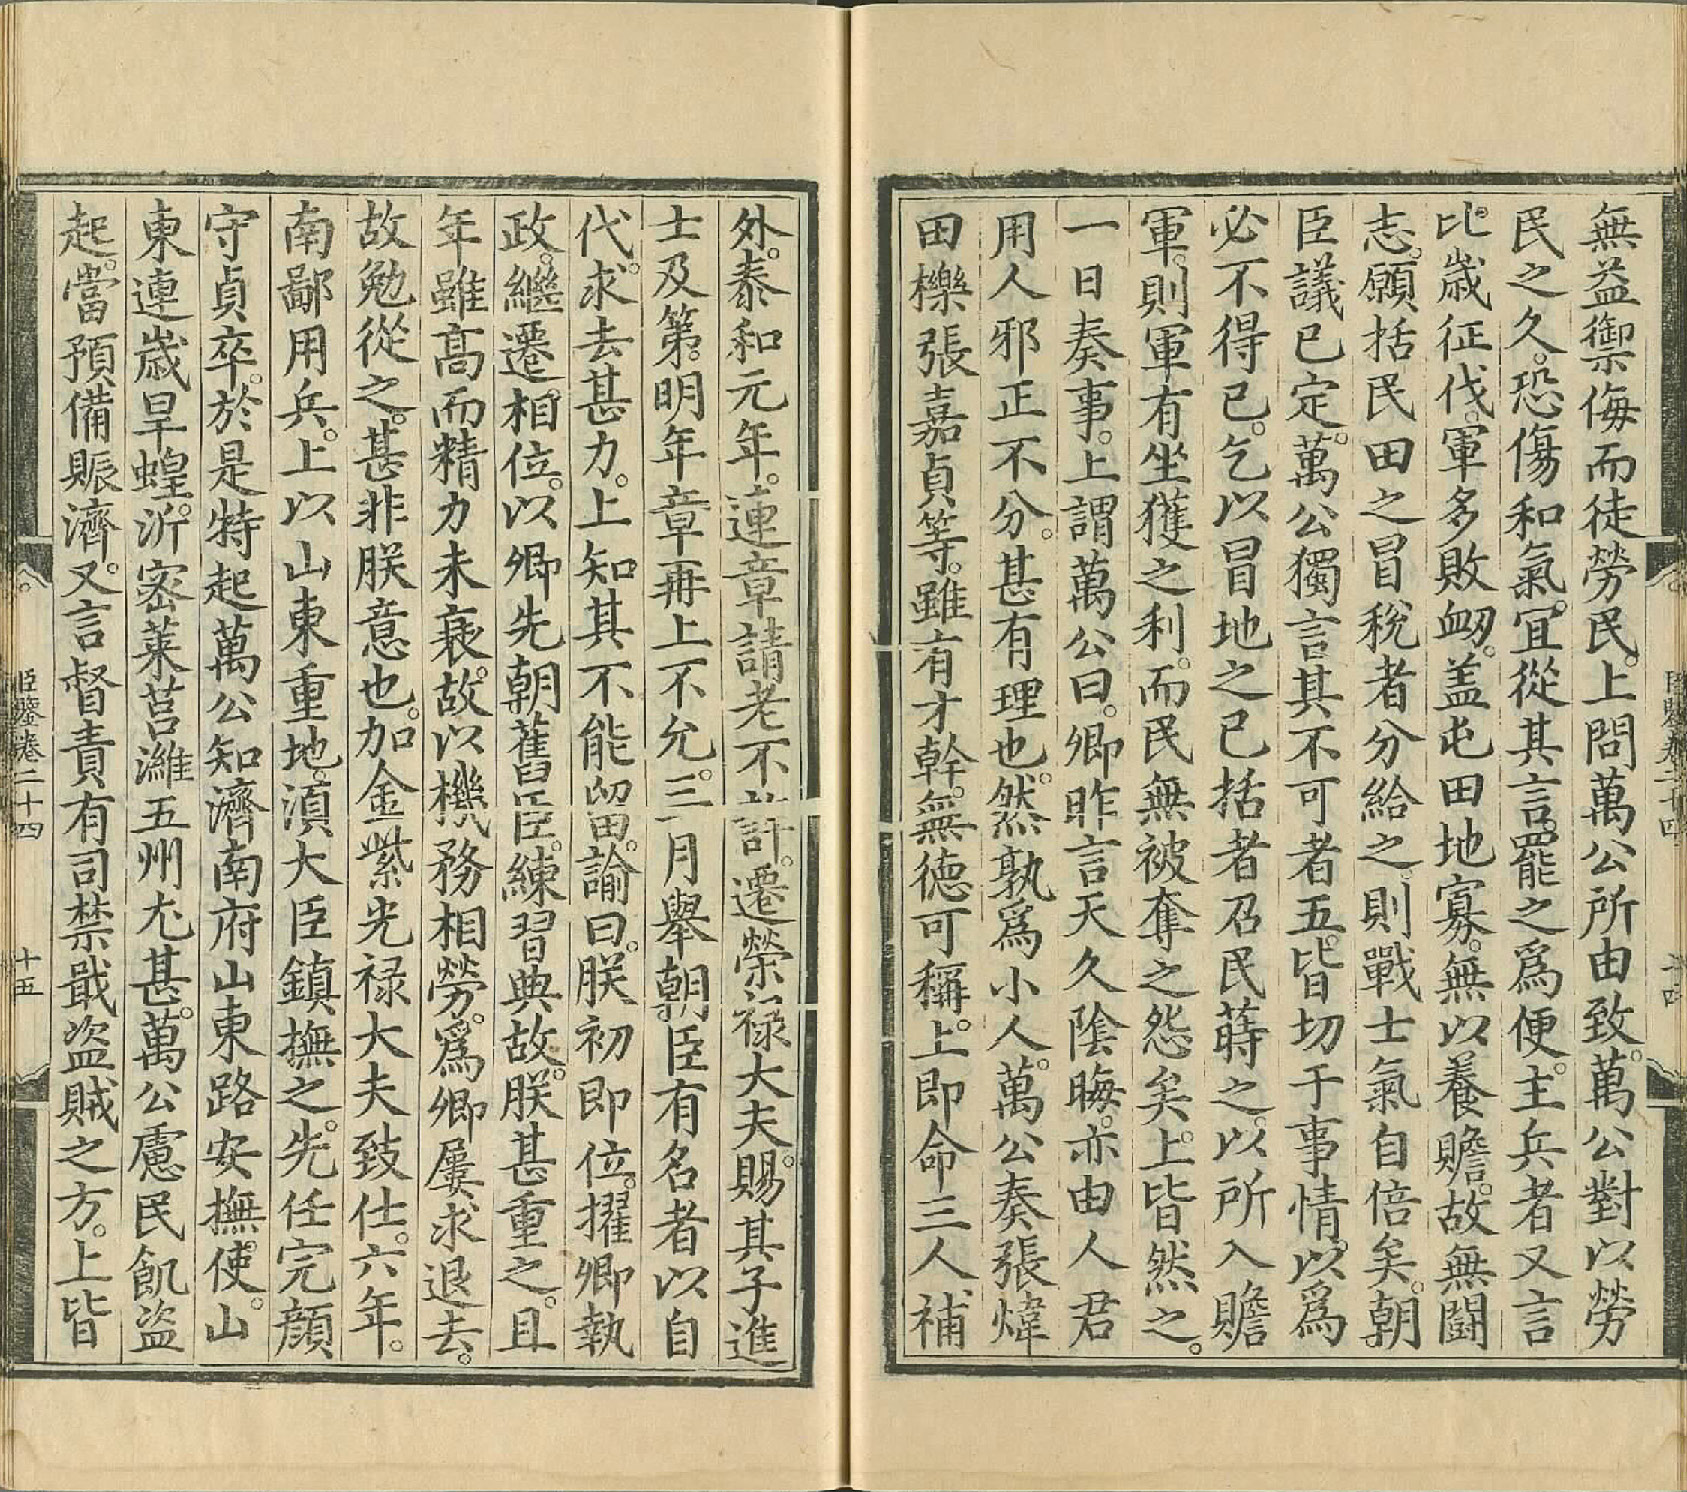 無益禦侮而徒勞民。上問萬公所由致。萬公對以勞
民之久。恐傷和氣。宜從其言。罷之爲便。主兵者又言
比歲征伐。軍多敗衂。盖屯田地寡。無以養贍。故無鬪
志。願括民田之冒稅者分給之。則戰士氣自倍矣。朝
臣議已定。萬公獨言其不可者五。皆切于事情。以爲
必不得已。乞以冒地之已括者召民蒔之。以所入贍
軍。則軍有坐獲之利。而民無被奪之怨矣。上皆然之。
一日奏事。上謂萬公曰。卿昨言天久陰晦。亦由人君
用人邪正不分。甚有理也。然孰爲小人。萬公奏張煒
田櫟張嘉貞等。雖有才幹。無德可稱。上即命三人補
外。泰和元年。連章請老不許。遷榮祿大夫。賜其子進
士及第。明年章再上不允。三月舉朝臣有名者以自
代。求去甚力。上知其不能留。諭曰。朕初即位。擢卿執
政。繼遷相位。以卿先朝舊臣。練習典故。朕甚重之。且
年雖高而精力未衰。故以機務相勞。爲卿屢求退去。
故勉從之。甚非朕意也。加金紫光祿大夫致仕。六年。
南鄙用兵。上以山東重地。須大臣鎮撫之。先任完顔
守貞卒。於是特起萬公知濟南府山東路安撫使。山
東連歲旱蝗。沂密萊莒濰五州尤甚。萬公慮民飢盜
起。當預備賑濟。又言督責有司禁戢盜賊之方。上皆
臣鑒卷二十四
十五